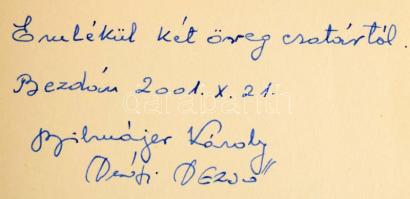 Emlékül két öreg csatártól.
Bezdán 2001. X. 21.
Károly
Dezső